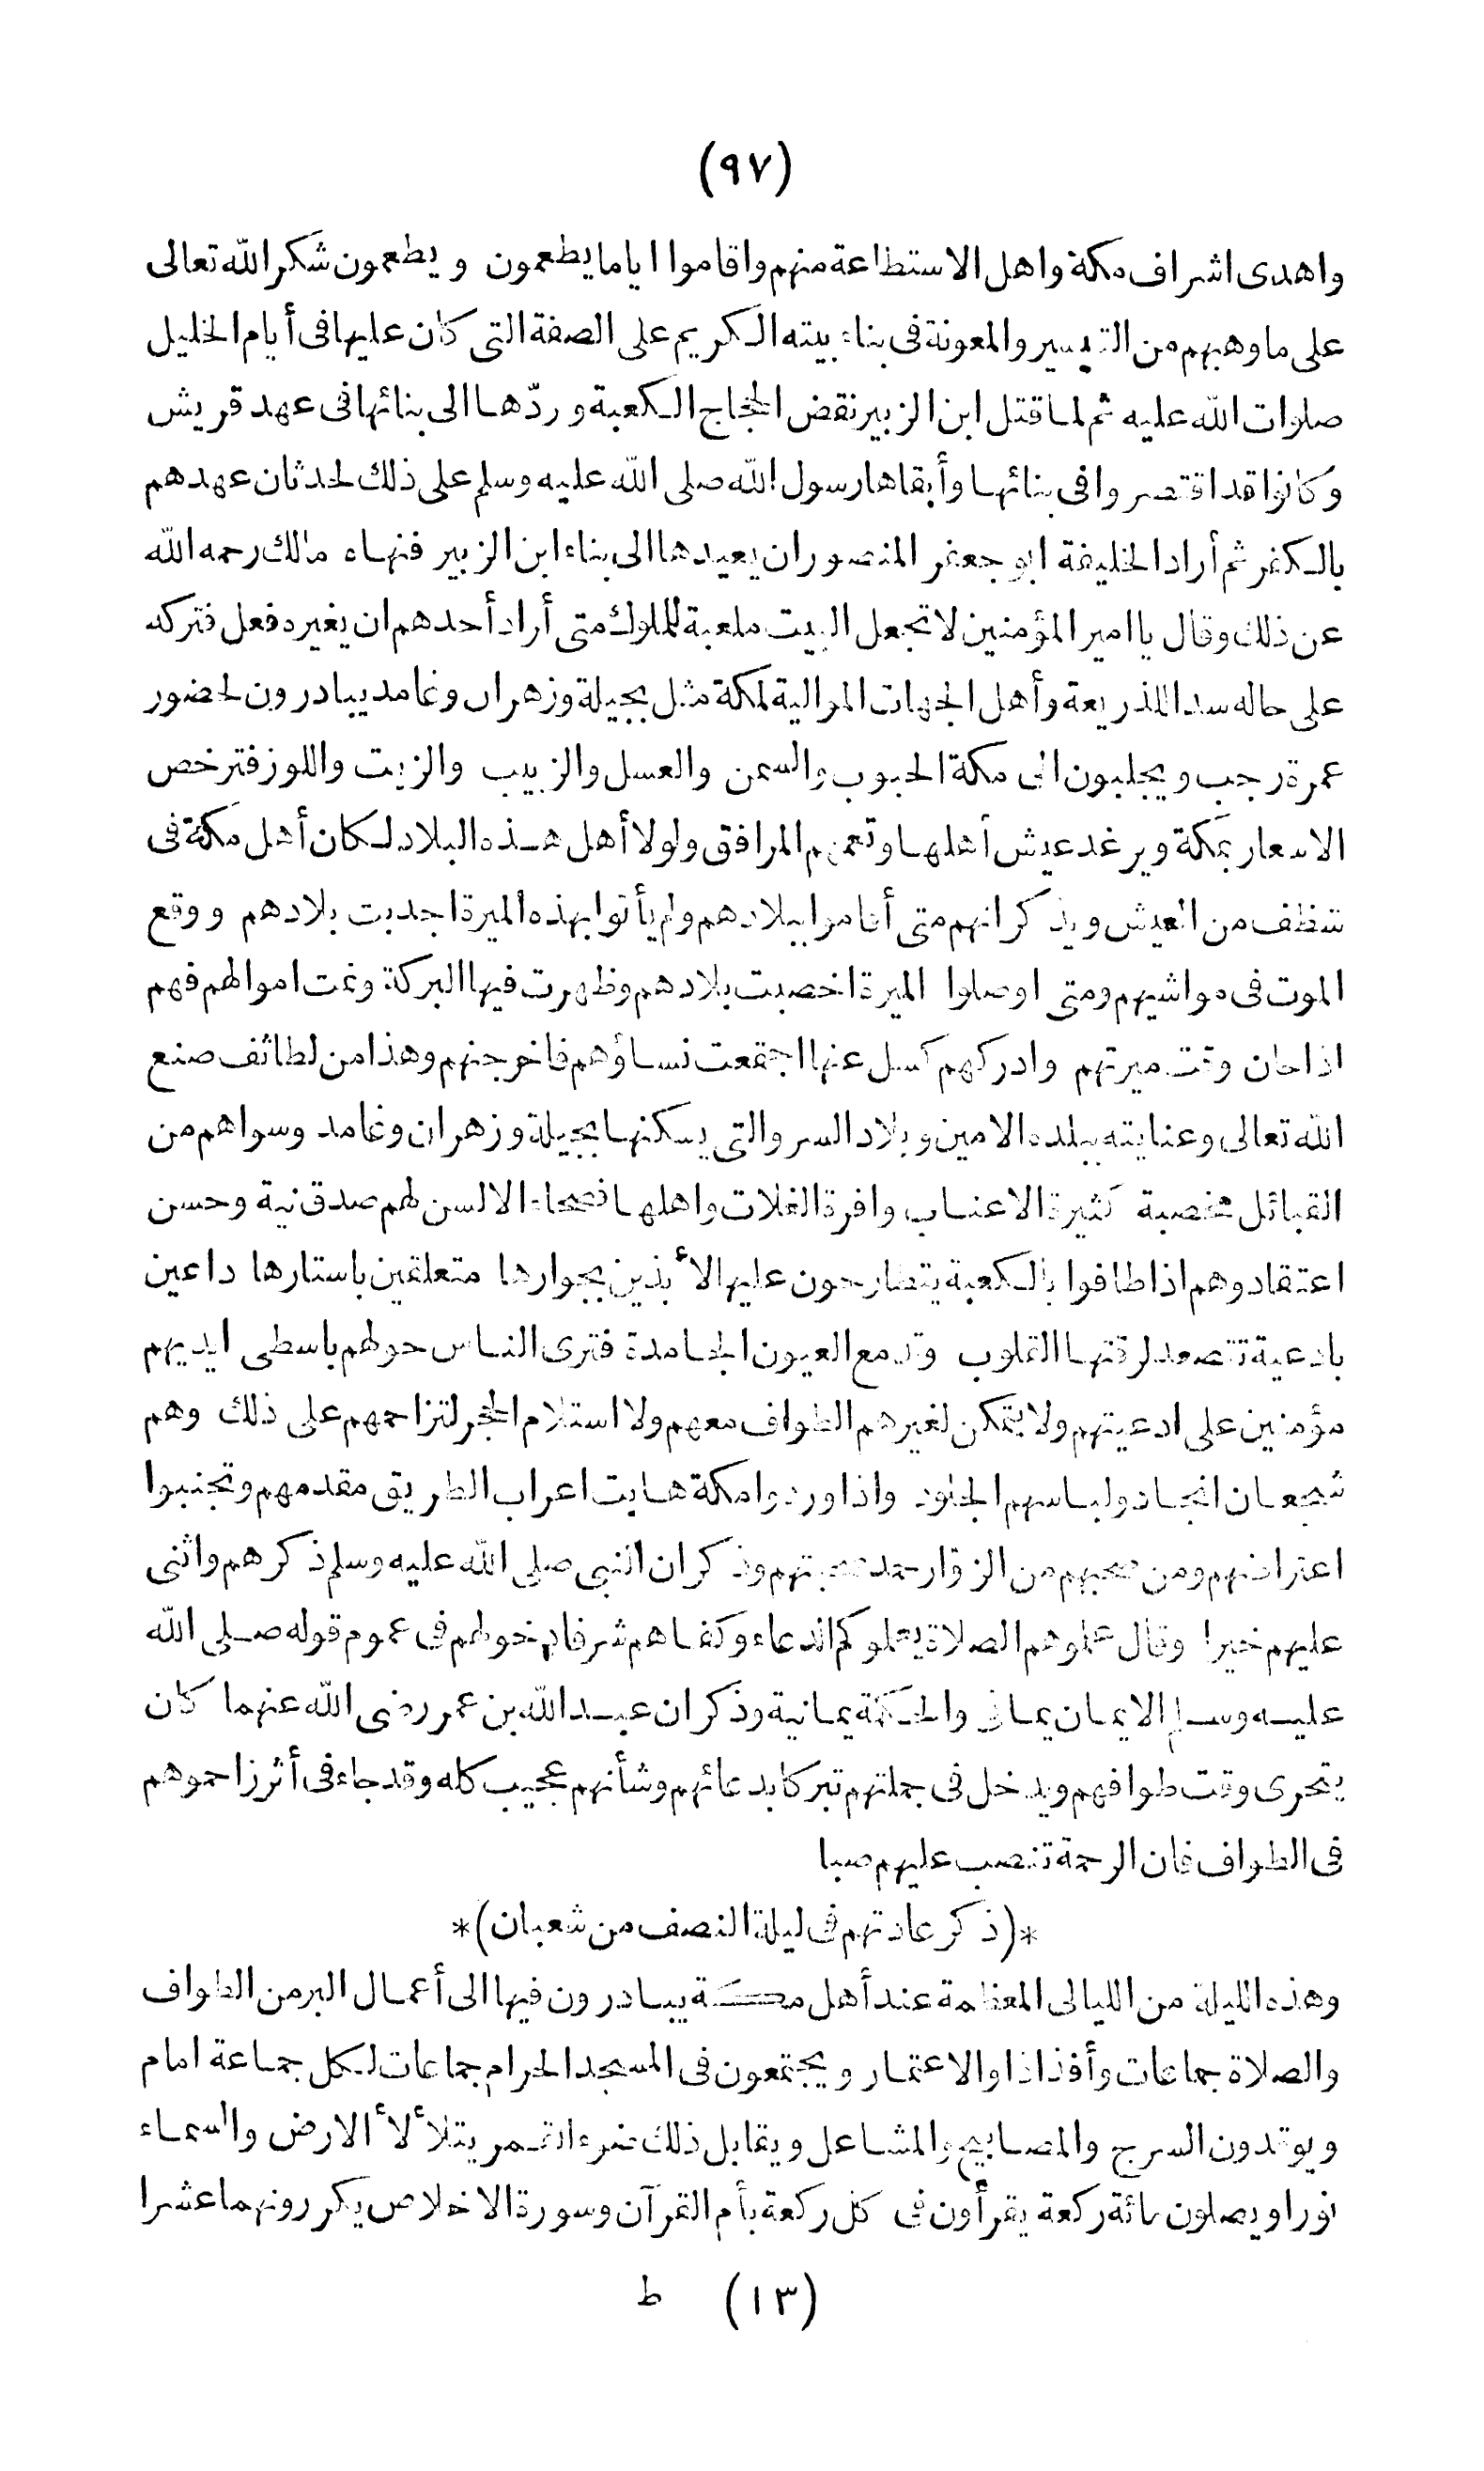 (٩٧)
واهدى اشراف مكة واهل الاستطاعة منهم واقاموا اياما يطعمون ويطعمون شكرا لله تعالى
على ما وهبهم من التيسير والمعونة فى بناء بيته الكريم على الصفة التى كان عليها فى أيام الخليل
صلوات الله عليه ثم لما قتل ابن الزبير نقض الحجاج الكعبة وردّها الى بنائها فى عهد قريش
وكانوا قد اقتصروا فى بنائها وأبقاها رسول الله صلى الله عليه وسلم على ذلك لحدثان عهدهم
بالكفر ثم أراد الخليفة ابو جعفر المنصور ان يعيدها الى بناء ابن الزبير فنهاه مالك رحمه الله
عن ذلك وقال يا امير المؤمنين لا تجعل البيت ملعبة للملوك متى أراد أحدهم ان يغيره فعل فتركه
على حاله سدا للذريعة وأهل الجهات الموالية لمكة مثل بجيلة وزهران وغامد يبادرون لحضور
عمرة رجب ويجلبون الى مكة الحبوب والسمن والعسل والزبيب والزيت واللوز فترخص
الاسعار بمكة ويرغد عيش أهلها وتعمهم المرافق ولولا أهل هذه البلاد لكان أهل مكة فى
شظف من العيش ويذكر انهم متى أقاموا ببلادهم ولم يأتوا بهذه الميرة اجدبت بلادهم ووقع
الموت فى مواشيهم ومتى اوصلوا الميرة اخصبت بلادهم وظهرت فيها البركة ونمت اموالهم فهم
اذا حان وقت ميرتهم وادركهم كسل عنها اجتمعت نساؤهم فاخرجنهم وهذا من لطائف صنع
الله تعالى وعنايته ببلده الامين وبلاد السرو التى يسكنها بجيلة وزهران وغامد وسواهم من
القبائل مخصبة كثيرة الاعناب وافرة الغلات واهلها فصحاء الالسن لهم صدق نية وحسن
اعتقاد وهم اذا طافوا بالكعبة يتطارحون عليها لائذين بجوارها متعلقين باستارها داعين
بادعية تتصعد لرقتها القلوب وتدمع العيون الجامدة فترى الناس حولهم باسطى ايديهم
مؤمنين على ادعيتهم ولا يتمكن لغيرهم الطواف معهم ولا استلام الحجر لتزاحمهم على ذلك وهم
شجعان انجاد ولباسهم الجلود واذا وردوا مكة هابت اعراب الطريق مقدمهم وتجنبوا
اعتراضهم ومن صحبهم من الزوّار حمد صحبتهم وذكر ان النبى صلى الله عليه وسلم ذكرهم واثنى
عليهم خيرا وقال علموهم الصلاة يعلموكم الدعاء وكفاهم شرفا دخولهم فى عموم قوله صلى الله
عليه وسلم الايمان يمان والحكمة يمانية وذكر ان عبد الله بن عمر رضى الله عنهما كان
يتحرى وقت طوافهم ويدخل فى جملتهم تبركا بدعائهم وشأنهم عجيب كله وقد جاء فى أثر زاحموهم
فى الطواف فان الرحمة تنصب عليهم صبا
*(ذكر عادتهم فى ليلة النصف من شعبان)*
وهذه الليلة من الليالى المعظمة عند أهل مكة يبادرون فيها الى أعمال البر من الطواف
والصلاة جماعات وأفذاذا والاعتمار ويجتمعون فى المسجد الحرام جماعات لكل جماعة امام
ويوقدون السرج والمصابيح والمشاعل ويقابل ذلك ضوء القمر يتلألأ الارض والسماء
نورا ويصلون مائة ركعة يقرأون فى كل ركعة بأم القرآن وسورة الاخلاص يكررونهما عشرا
(١٣) ط